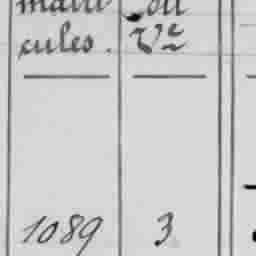 matri ou
cules. Ve
1089 3